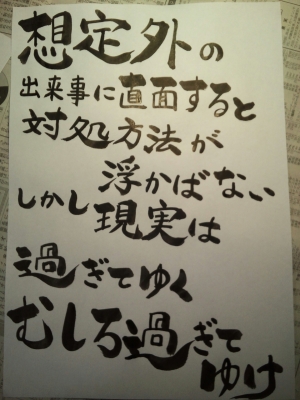 想定外の
出来事に直面すると
対処方法が
浮かばない
しかし現実は
過ぎてゆく
むしろ過ぎて
ゆけ